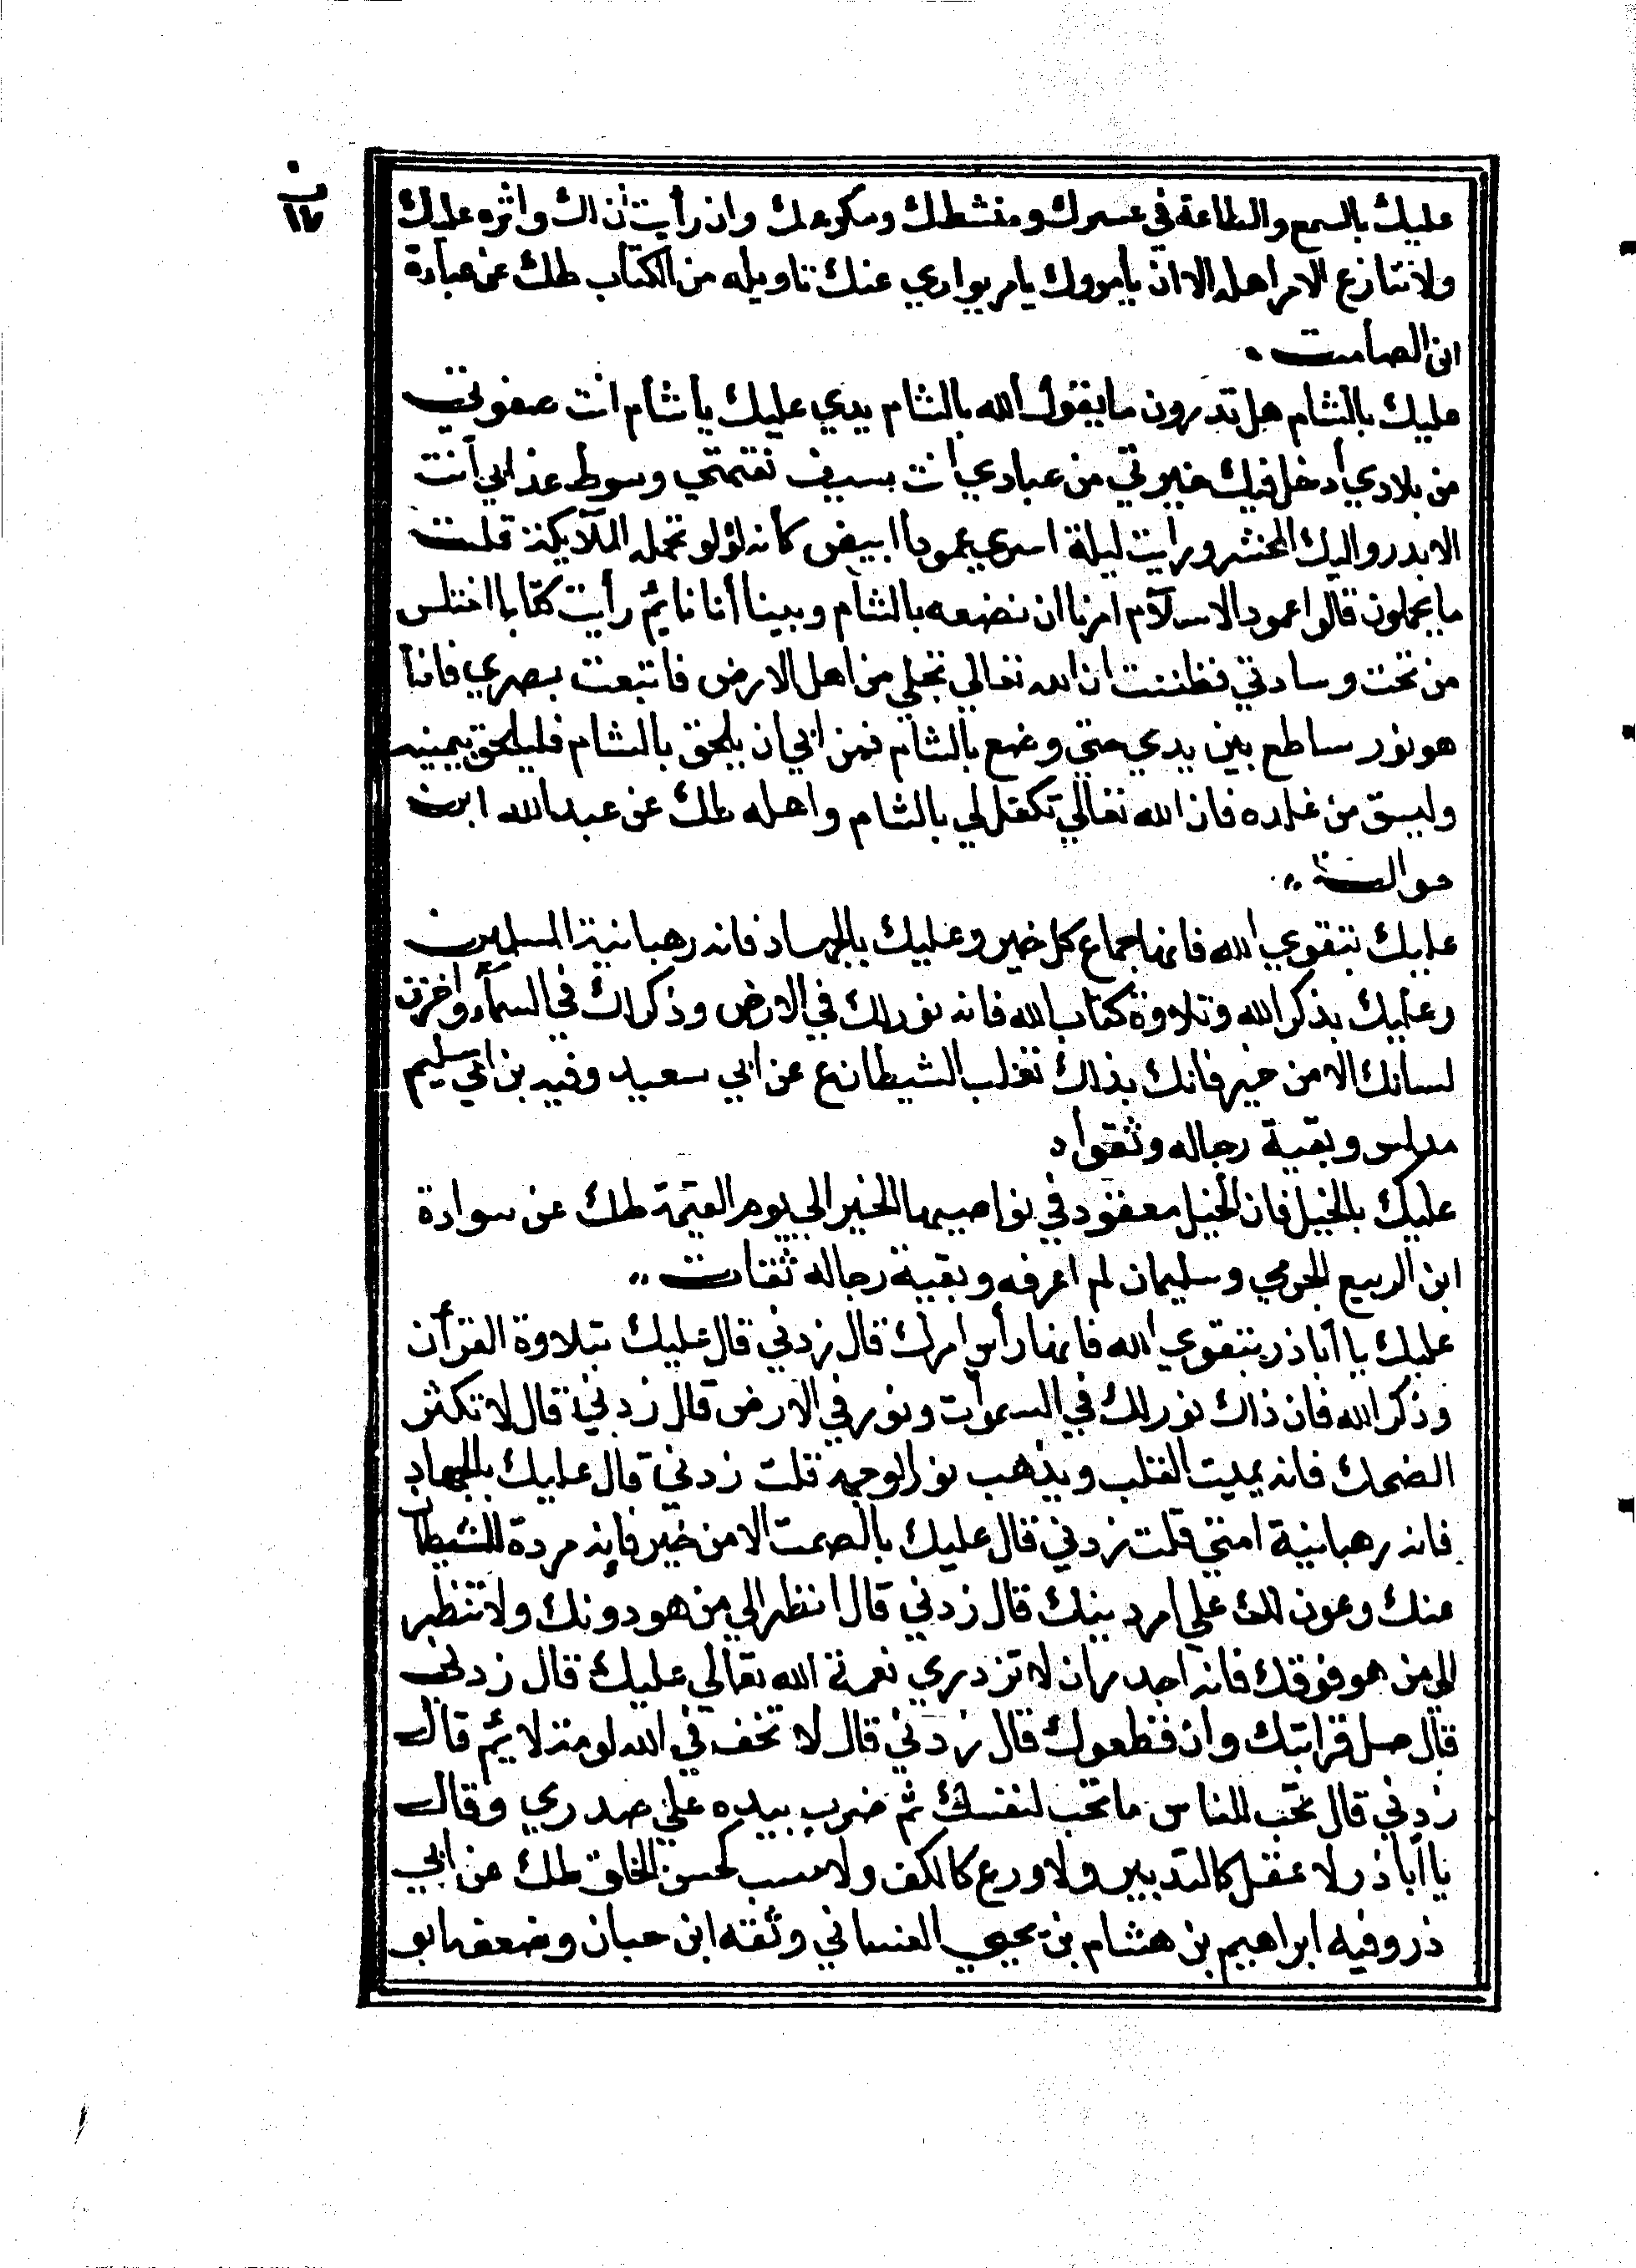 ن
١٧
عليك بالسمع والطاعة في عسرك ومنشطك ومكرهك وان رأيت ان لك واثره عليك
ولا تنازع الامر اهله الا ان يأمروك بامر يواري عنك تاويله من الكتاب طك عن عبادة
ابن الصامت .
عليك بالشام هل تدرون ما يقول الله بالشام يدي عليك يا شام انت صفوتي
من بلادي أدخل فيك خيرتي من عبادي أنت بسيف نقمتي وسوط عذابي أنت
الاندر واليك المحشر ورأيت ليلة اسري بي عمودا ابيض كأنه لؤلو تحمله الملآيكة قلت
ما تحملون قالوا عمود الاسلآم امرنا ان نضعه بالشأم وبينا أنا نايم رأيت كتابا اختلس
من تحت وسادتي فظننت ان الله تعالي تجلي من اهل الارض فاتبعت بصري فاذا
هو نور ساطع بين يدي حتي وضع بالشام فمن ابي ان يلحق بالشام فليلحق بيمينه
وليسق من غدره فان الله تعالي تكفل لي بالشام واهله طك عن عبد الله ابن
حوالة ..
عليك بتقوي الله فانها جماع كل خير وعليك بالجهاد فانه رهبانية المسلمين
وعليك بذكر الله وتلاوة كتاب الله فانه نور لك في الارض وذكر لك في السمآء واخزن
لسانك الا من خير فانك بذلك تغلب الشيطان ع عن ابي سعيد وفيه بن ابي سليم
مدلس وبقية رجاله وثقوا د
عليك بالخيل فان الخيل معقود في نواصيها الخير الي يوم القيمة طك عن سوادة
ابن الربيع الجرمي وسليمان لم اعرفه وبقية رجاله ثقات ..
عليك يا أباذر بتقوي الله فانها رأس امرك قال زدني قال عليك بتلاوة القرأن
وذكر الله فان ذاك نور لك في السموات ونور في الارض قال زدني قال لا تكثر
الضحك فانه يميت القلب ويذهب نور الوجه قلت زدني قال عليك بالجهاد
فانه رهبانية امتي قلت زدني قال عليك بالصمت الا من خير فانه مردة للشيطان
عنك وعون لك علي امر دينك قال زدني قال انظر الي من هو دونك ولا تنظر
الي من هو فوقك فانه اجدر ان لا تزدري نعمة الله تعالي عليك قال زدني
قال صل قرابتك وان قطعوك قال زدني قال لا تخف في الله لومة لايم قال
زدني قال تحب للناس ما تحب لنفسك ثم ضرب بيده علي صدري وقال
يا أباذر لا عقل كالتدبير ولا ورع كالكف ولا حسب كحسن الخلق طك عن ابي
ذر وفيه ابراهيم بن هشام بن يحيي الغساني وثقه ابن حبان وضعفه ابو